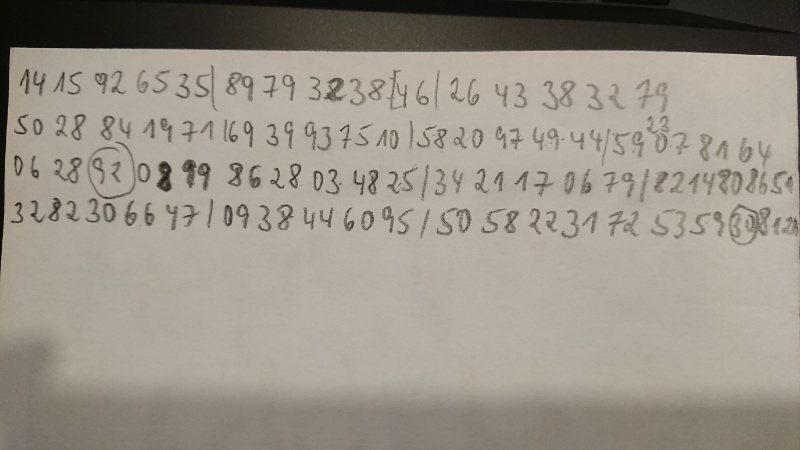 14 15 92 65 35|89 79 32 38|46|26 43 38 32 79
50 28 84 19 71|69 39 93 75 10|58 20 97 49 44/59 23 07 81 64
06 28 92 08 99 86 28 03 48 25/34 21 17 06 79/82 14 80 86 51
32 82 30 66 47/09 38 44 60 95/50 58 22 31 72 53 59 30 81 2